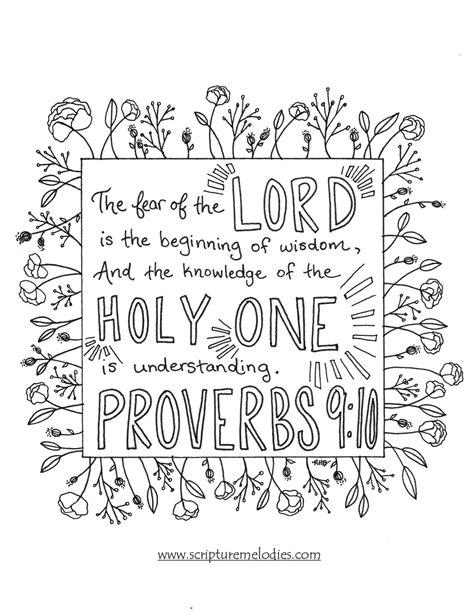 The fear of the LORD
is the beginning of wisdom,
And the knowledge of the
HOLY ONE
is understanding.
PROVERBS 9:10
RHB
www.scripturemelodies.com